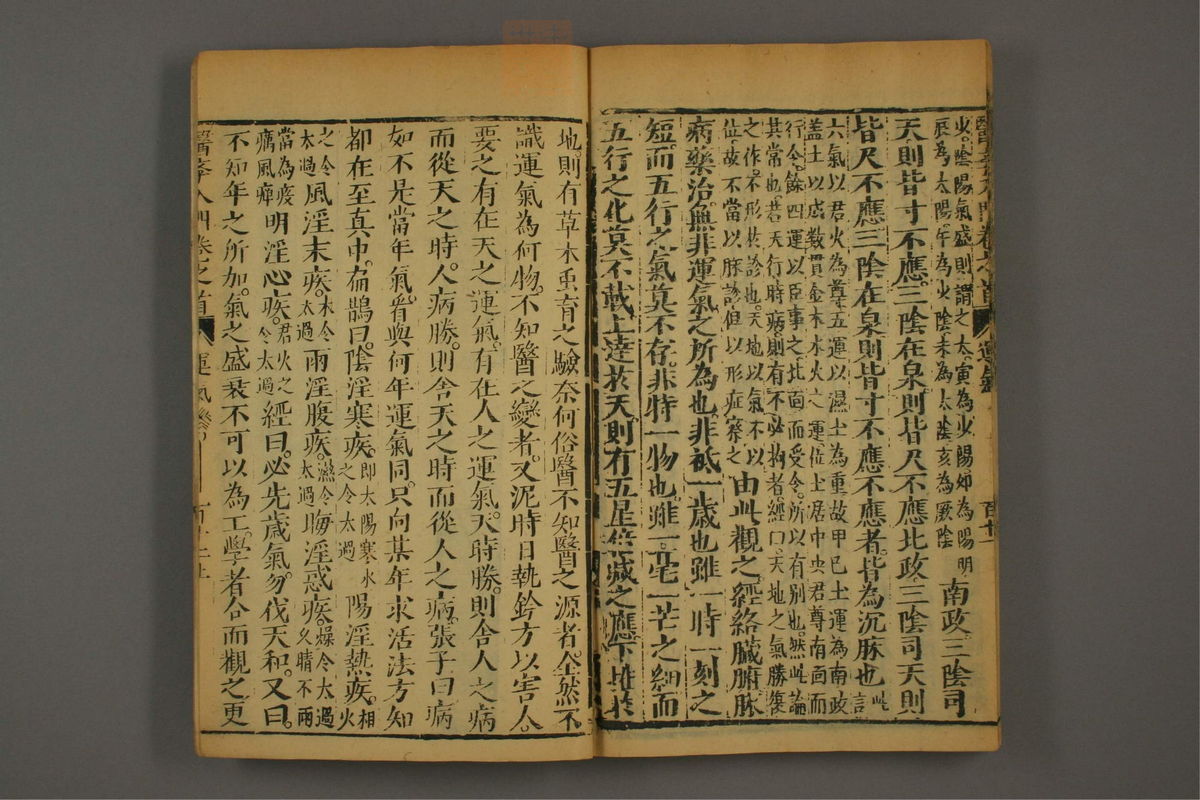 醫學入門卷之首 運氣 百十一
火陰陽氣盛則謂之太寅為少陽卯為陽明
辰為太陽午為少陰未為太陰亥為厥陰
南政三陰司
天則皆寸不應三陰在泉則皆尺不應北政三陰司天則
皆尺不應三陰在泉則皆寸不應不應者皆為沉脉也
此言
六氣以君火為尊五運以濕土為重故甲己土運為南政
盖土以成数貫金木水火之運位土居中央君尊南面而
行令餘四運以臣事之北面而受令所以有别也然此論
其常也若天行時病則有不必拘者經曰天地之氣勝復
之作不形於診也天地以氣不以
位故不當以脉診但以形症察之
由此觀之經絡臟腑脉
病藥治無非運氣之所為也非祗一歲也雖一時一刻之
短而五行之氣莫不存非特一物也雖一毫一芒之細而
五行之化莫不載上達於天則有五星倍減之應下推於
地則有草木䖝育之驗奈何俗醫不知醫之源者全然不
識運氣為何物不知醫之變者又泥時日執鈐方以害人
要之有在天之運氣有在人之運氣天時勝則舍人之病
而從天之時人病勝則舍天之時而從人之病張子曰病
如不是當年氣看與何年運氣同只向某年求活法方知
都在至真中扁鵲曰陰淫寒疾
即太陽寒水
之令太過
陽淫熱疾
相火
之令
太過
風淫末疾
木令
太過
雨淫腹疾
濕令
太過
晦淫惑疾
燥令太過
久晴不雨
當為疫
癘風瘴
明淫心疾
君火之
令太過
經曰必先歲氣勿伐天和又曰
不知年之所加氣之盛衰不可以為工學者合而觀之更
醫學入門卷之首 運氣